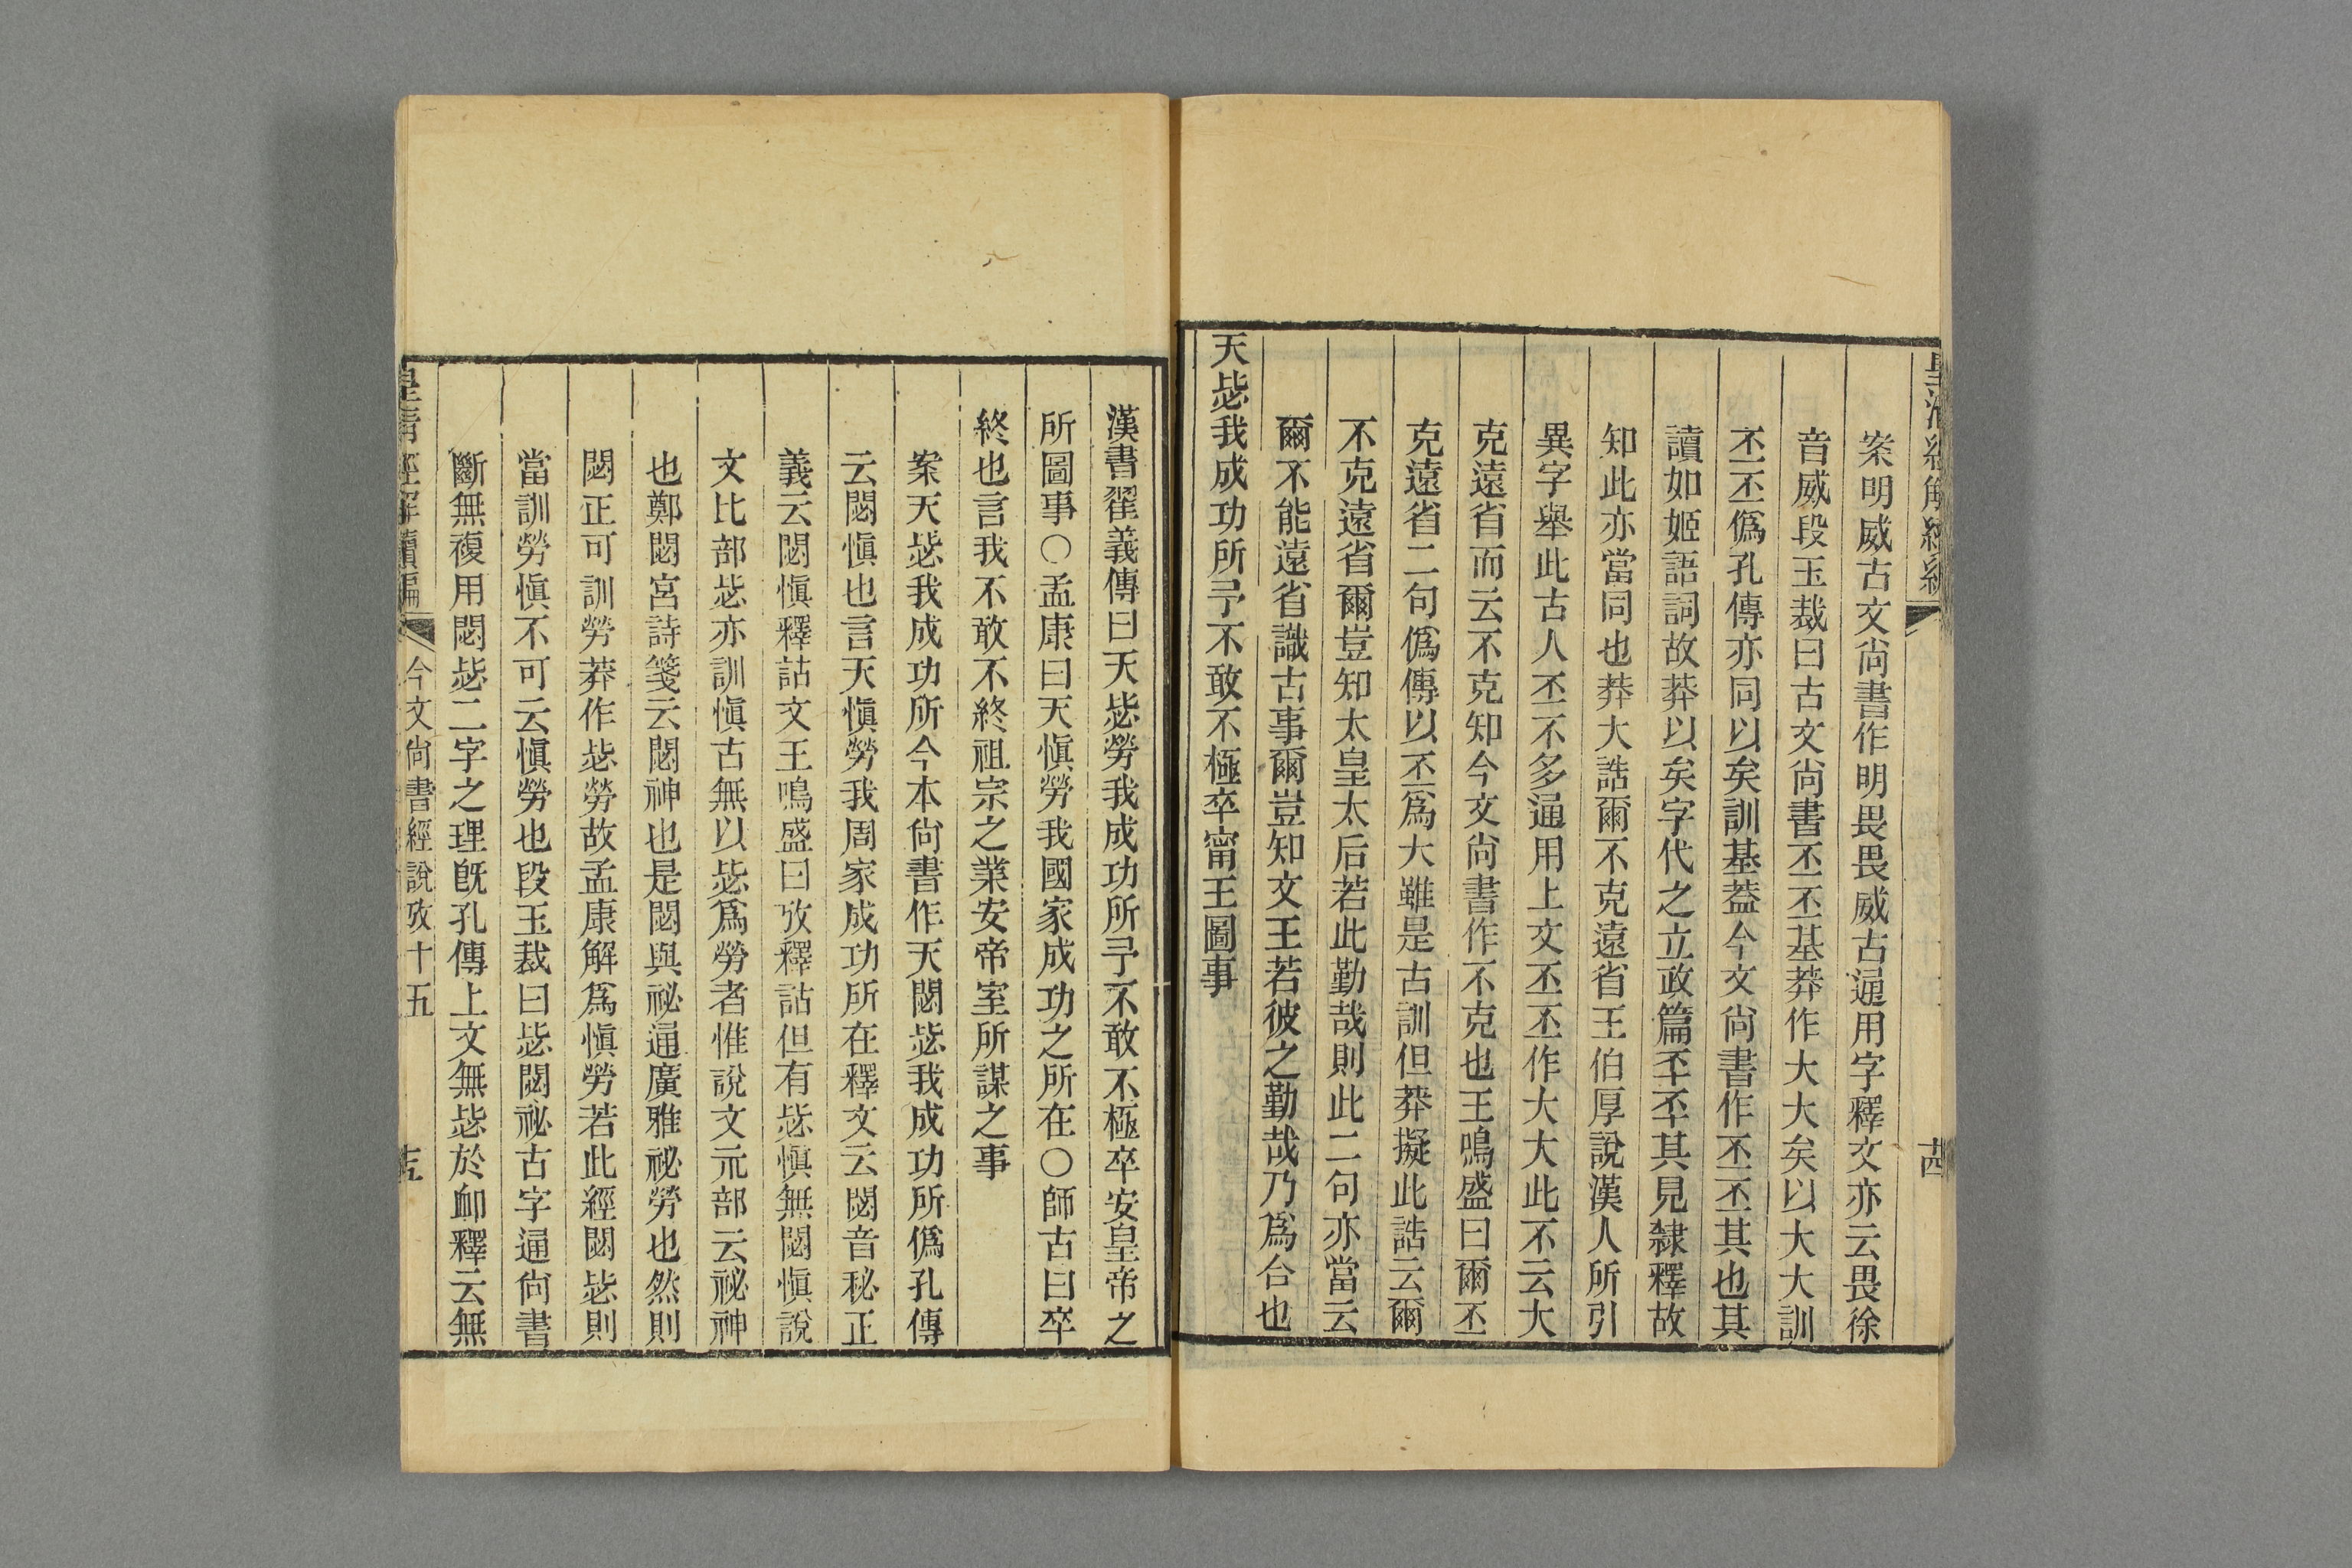 皇清經解續編
十四
案明威古文尙書作明畏畏威古通用字釋文亦云畏徐
音威段玉裁曰古文尙書丕丕基莽作大大矣以大大訓
丕丕僞孔傳亦同以矣訓基葢今文尙書作丕丕其也其
讀如姬語詞故莽以矣字代之立政篇丕丕其見隸釋故
知此亦當同也莽大誥爾不克遠省王伯厚說漢人所引
異字舉此古人丕不多通用上文丕丕作大大此不云大
克遠省而云不克知今文尙書作不克也王鳴盛曰爾丕
克遠省二句僞傳以丕爲大雖是古訓但莽擬此誥云爾
不克遠省爾豈知太皇太后若此勤哉則此二句亦當云
爾不能遠省識古事爾豈知文王若彼之勤哉乃爲合也
天毖我成功所予不敢不極卒甯王圖事
漢書翟義傳曰天毖勞我成功所予不敢不極卒安皇帝之
所圖事○孟康曰天愼勞我國家成功之所在○師古曰卒
終也言我不敢不終祖宗之業安帝室所謀之事
案天毖我成功所今本尙書作天閟毖我成功所僞孔傳
云閟愼也言天愼勞我周家成功所在釋文云閟音秘正
義云閟愼釋詁文王鳴盛曰攷釋詁但有毖愼無閟愼說
文比部毖亦訓愼古無以毖爲勞者惟說文示部云祕神
也鄭閟宮詩箋云閟神也是閟與祕通廣雅祕勞也然則
閟正可訓勞莽作毖勞故孟康解爲愼勞若此經閟毖則
當訓勞愼不可云愼勞也段玉裁曰毖閟祕古字通尙書
斷無複用閟毖二字之理旣孔傳上文無毖於卹釋云無
皇清經解續編
今文尙書經說攷十五
十五